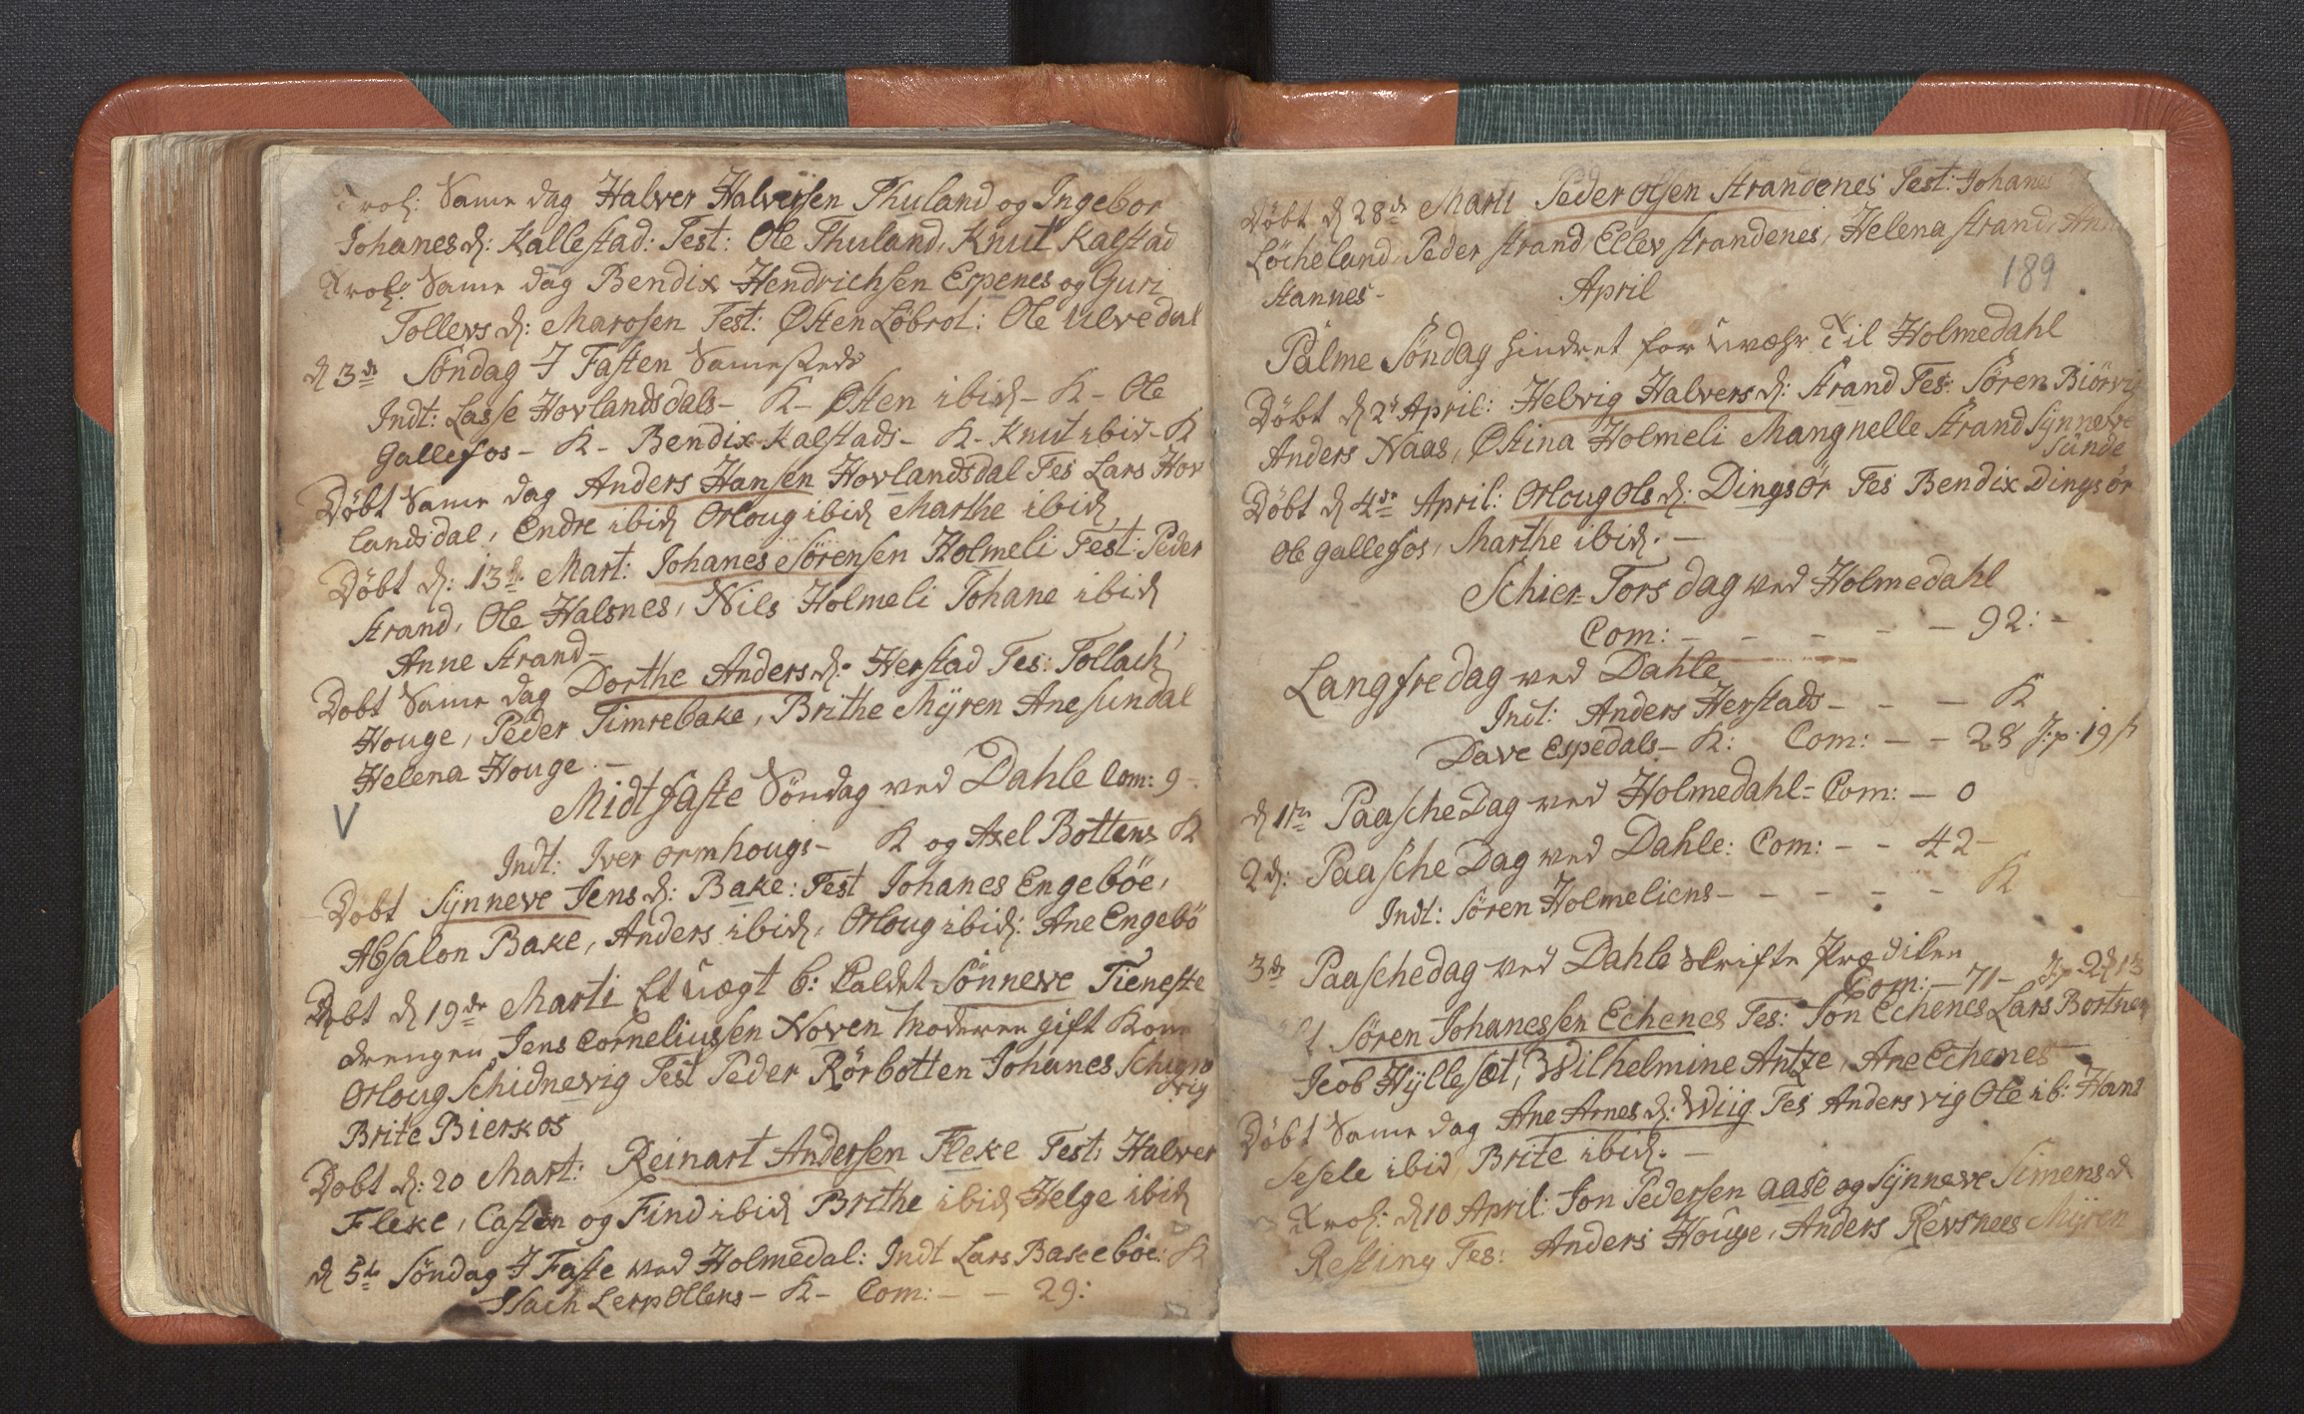 Trol: Same dag Halver Halversen Thuland og Ingebor
Johanesd: Kallestad: Test: Ole Thuland, Knut Kalstad
Trol: Same dag Bendix Hendrichsen Espenes og Guri
Tollevsd: Marosen Test: Østen Löbrol: Ole Ulvedal
d 3de Söndag I Fasten Samesteds
Indt: Lasse Hovlandsdals - K - Østen ibid - K - Ole
Gallefos - K - Bendix Kalstads - K - Knut ibid - K
Döbt Same dag Anders Hansen Hovlandsdal Tes Lars Hov
landsdal, Endre ibid Orloug ibid Marthe ibid
Döbt d: 13de Mart: Johanes Sörensen Holmeli Test: Peder
Strand, Ole Halsnes, Nils Holmeli Johane ibid
Anne Strand -
Döbt Same dag Dorthe Andersd: Herstad Tes: Tollach
Houge, Peder Timrebake, Brithe Mÿren Ane Sundal
Helena Houge. -
Midtfaste Söndag ved Dahle Com: 9 -
V
Indt: Iver Ormhougs - K og Axel Bottens K
Döbt Sÿnneve Jensd: Bake: Test Johanes Engeböe,
Absalon Bake, Anders ibid, Orloug ibid: Ane Engebö
Döbt d 19de Marti Et uægt b: kaldet Sönneve Tieneste
drengen Jens Corneliussen Noven Moderen gift Kone
Orloug Schidnevig Test Peder Rörbotten Johanes
vig
Brite Bierkos
Döbt d: 20 Mart: Reinart Andersen Fleke Test: Halver
Fleke, Casten og Find ibid Brithe ibid Helge ibid
d 5te Söndag I Faste ved Holmedal: Indt Lars Bakeböe: K
Isach Lerpollens - K - Com: - - 29:
Döbt d 28de Marti Peder Olsen Strandenes Test: Johanes
Löcheland Peder Strand Ellev Strandenes, Helena Strand,
189
Stannes -
April
Palme Söndag hindret for uvæhr Til Holmedahl
Döbt d 2d April: Helvig Halversd: Strand Tes: Sören Biörvig
Anders Naas, Østina Holmeli Mangnelle Strand Sÿnneve
Sunde
Döbt d 4de April: Orloug Olsd: Dingsör Tes Bendix Dingsör
Ole Gallefos, Marthe ibid. -
Schier-Torsdag ved Holmedahl
Com: - - - - - 92: -
Langfredag ved Dahle
Indt: Anders Herstads - - - K
Dave Espedals - K: Com: - - 28 J: p. 19 s
d 1ste Paasche Dag ved Holmedahl = Com: - 0
2d: Paasche Dag ved Dahle: Com: - - 42 -
Indt: Sören Holmeliens - - - - - K
3de Paaschedag ved Dahle Skrifte Prædiken
Com: - 71 -
Sören Johanessen Echenes Tes: Jon Echenes Lars Bortnen
Jcob Hÿllesøt, Wilhelmine Antze, Ane Echenes -
Döbt Same dag Ane Arnesd: Wiig Tes Anders Vig Ole ib: Hans
Sesele ibid Brite ibid. -
Trol: d 10 April: Jon Pedersen Aase og Sÿnneve Simensd
Resting Tes: Anders Houge, Anders Revsnees Mÿren